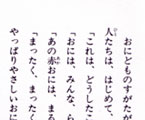 おにどものすがたが
人たちは、はじめて、
「これは、どうしたこ
「おには、みんな、ら
「あの赤おには、まる
「まったく、まったく
やっぱりやさしいおに